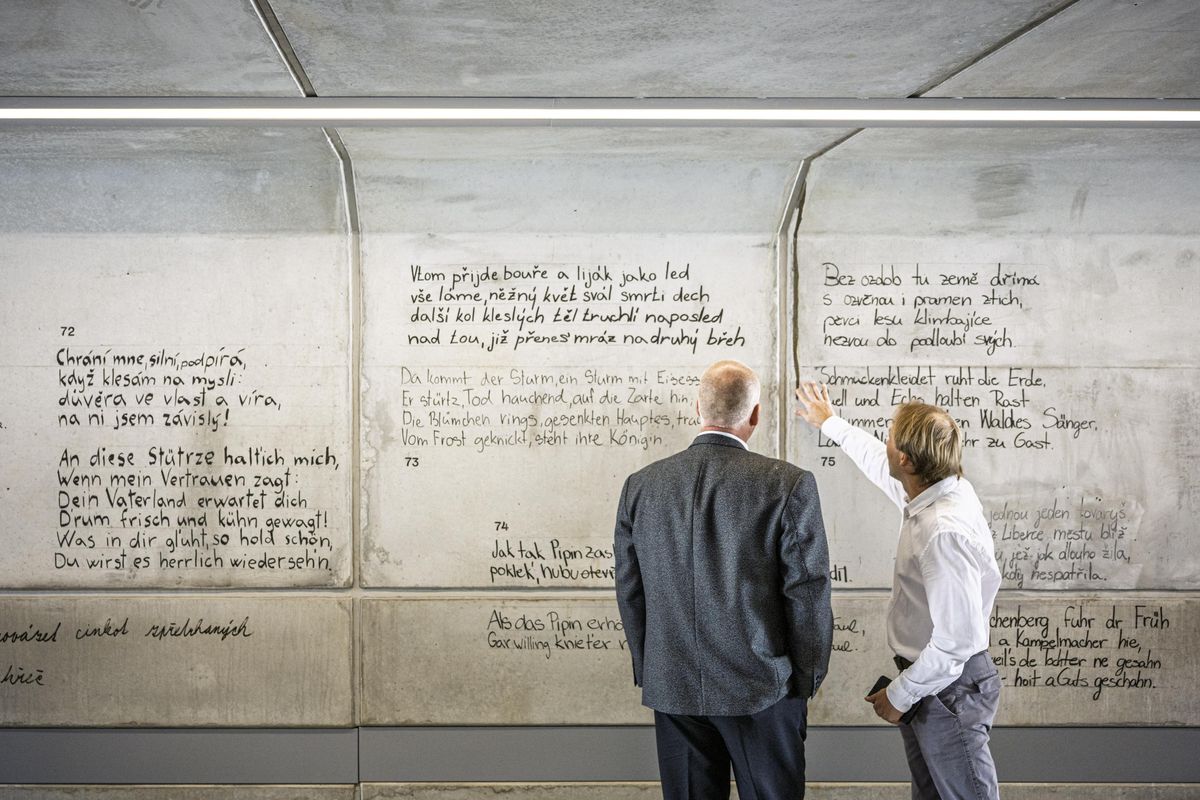 72
Chrání mne, silní, podpírá,
když klesám na mysli:
důvěra ve vlast a víra,
na ni jsem závislý!
An diese Stütze halt'ich mich,
Wenn mein Vertrauen zagt:
Dein Vaterland erwartet dich
D'rum frisch und kühn gewagt!
Was in dir glüht, so hold schön,
Du wirst es herrlich wiederseh'n.
cinkot zpřetrhaných
Vtom přijde bouře a liják jako led
vše láme, něžný květ svál smrti dech
další kol kleslých těl truchlí naposled
nad tou, již přenes' mráz na druhý břeh
Da kommt der Sturm, ein Sturm mit
Er stürtz, Tod hauchend, auf die Zarte hin,
Die Blümchen rings, gesenkten Hauptes,
Vom Frost geknickt, steht ihre Königin.
73
74
Jak tak Pipin
poklek, hubu
Als das Pipin
Gar willing knieter
Bez ozdob tu země dřímá
s ozvěnou i pramen ztich,
pěvci lesu klimbajíce
nezvou do podloubí svých.
Schmuckenkleidet ruht die Erde,
und Echo halten Rast
Waldes Sänger,
zu Gast.
75
jednou jeden tovaryš
z Liberce městu blíž
jež jak dlouho žila,
nespatřila.
fuhr dr Früh
a Kampelmacher hie,
weil's de Tochter ne gesahn
- hoit a Guts geschahn.